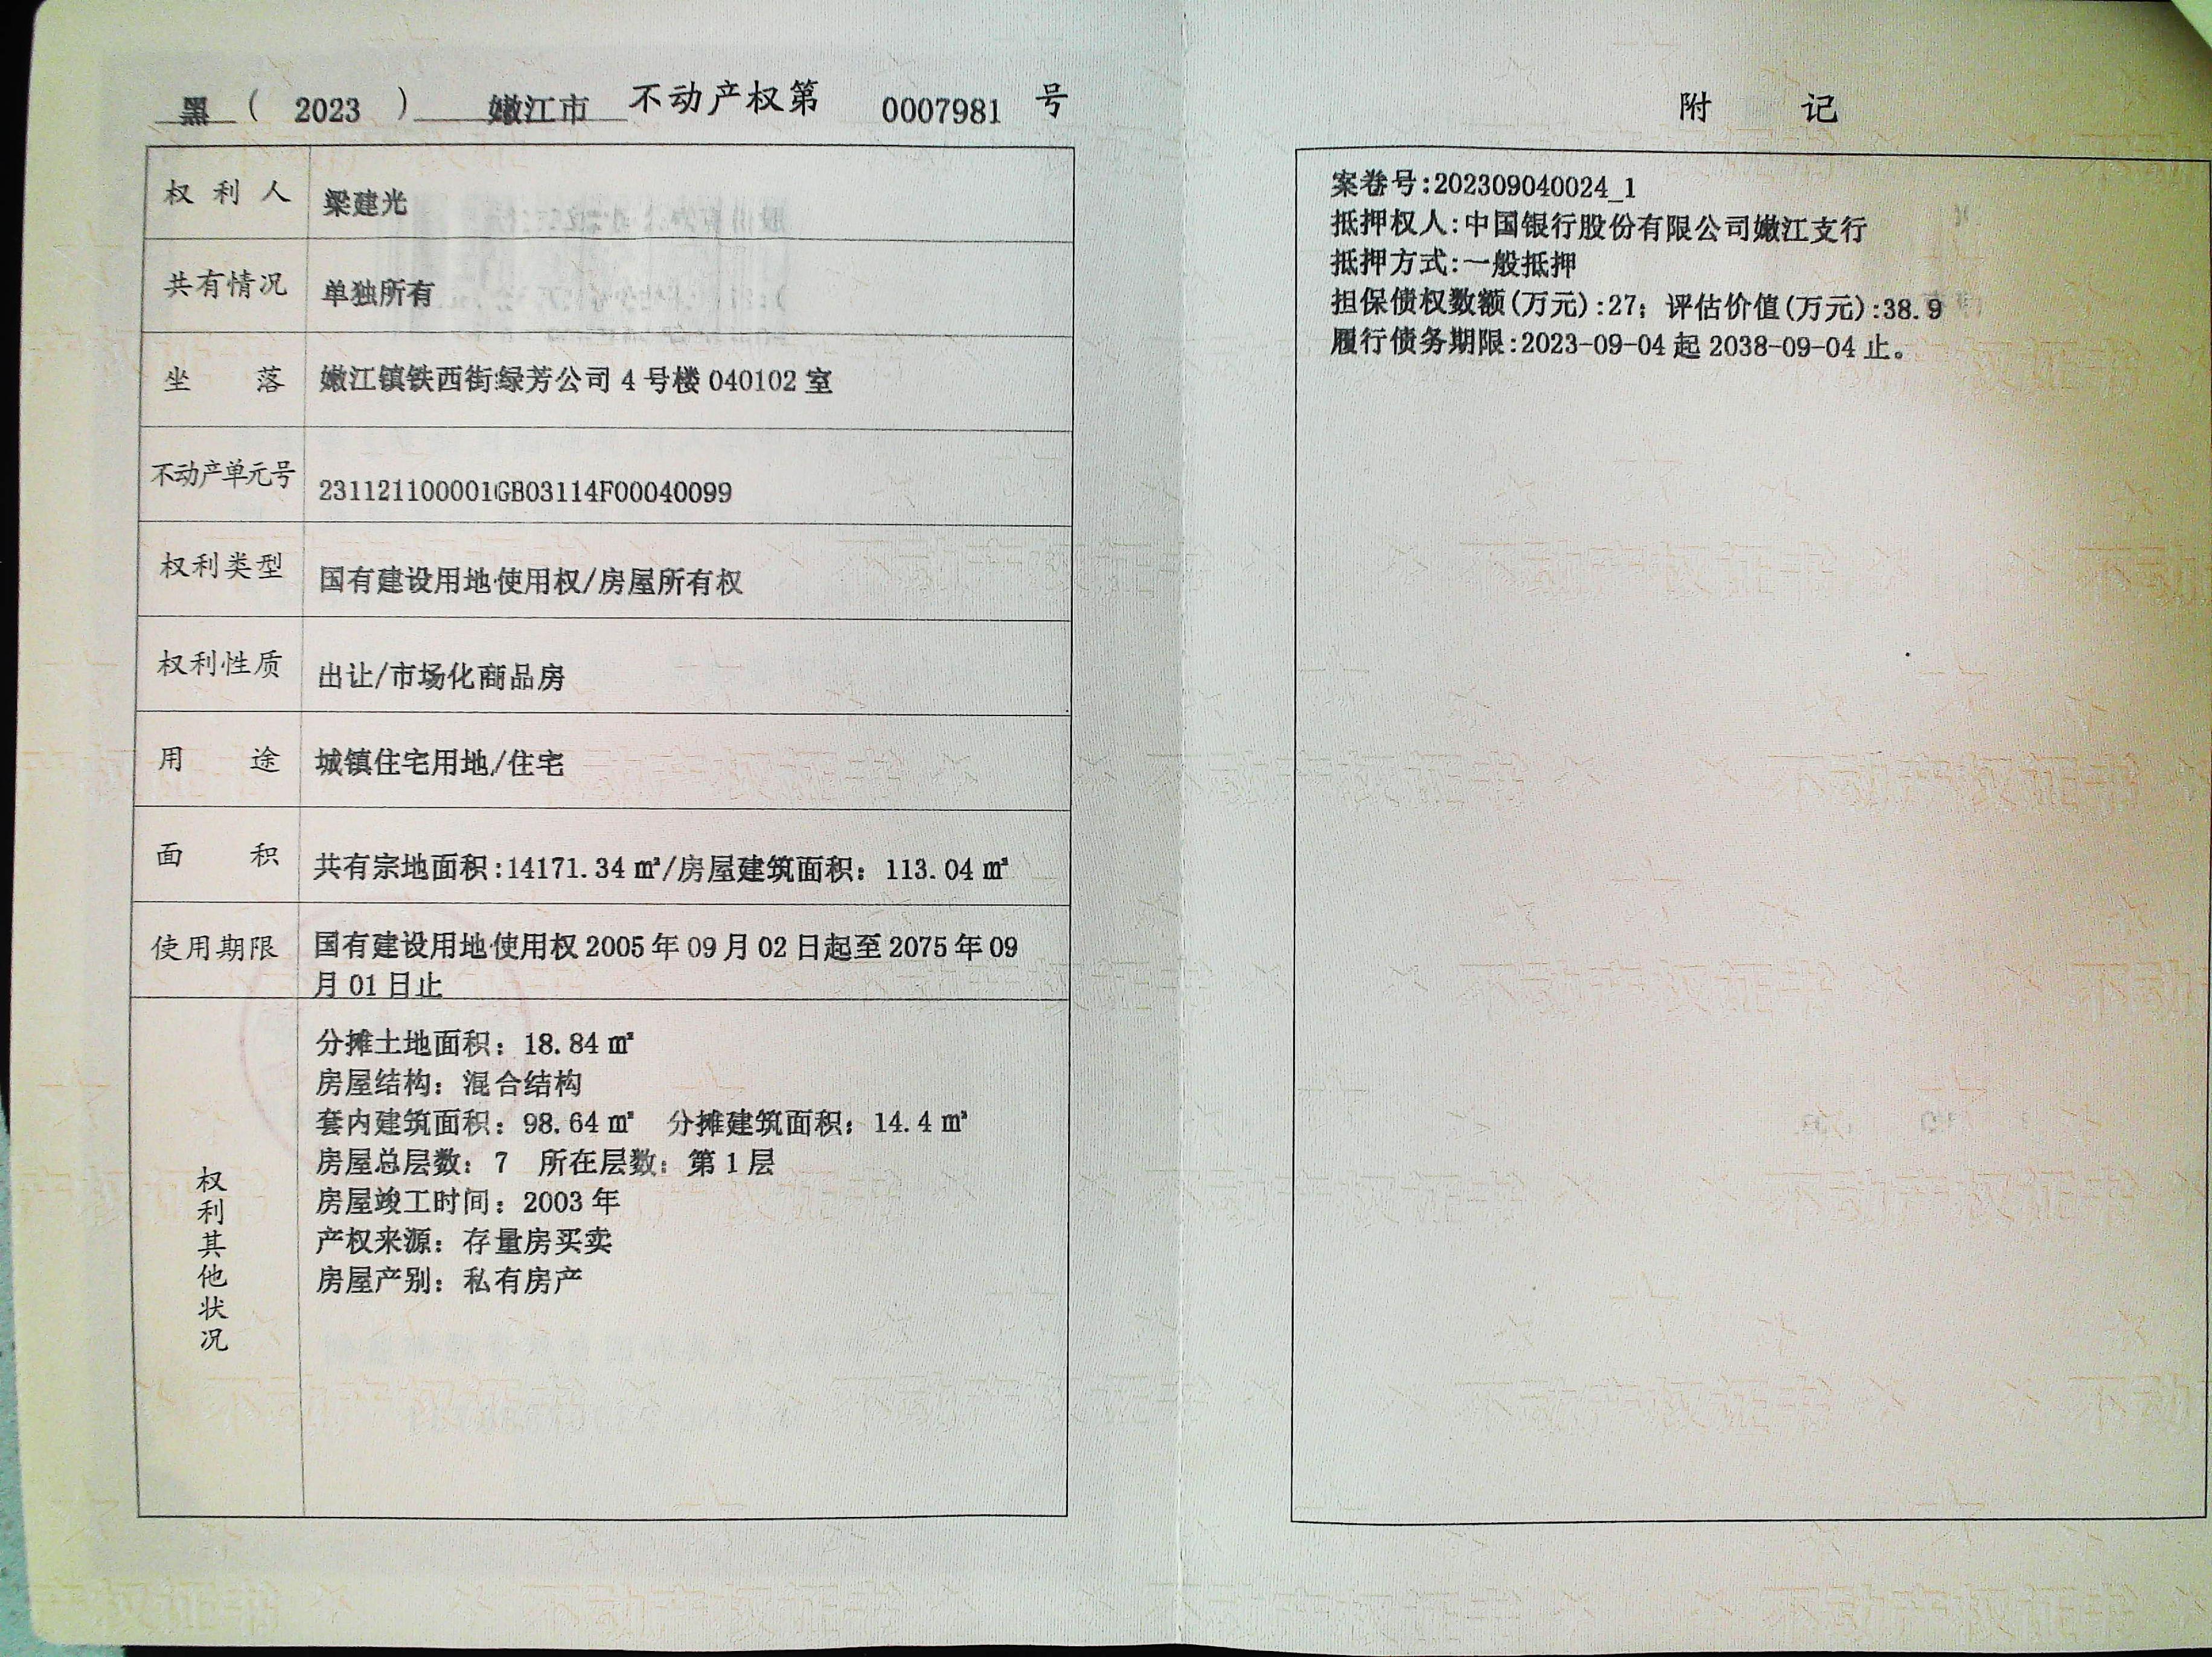 黑 ( 2023 ) 嫩江市 不动产权第 0007981 号
权利人 梁建光
共有情况 单独所有
坐落 嫩江镇铁西街绿芳公司 4 号楼 040102 室
不动产单元号 231121100001GB03114F00040099
权利类型 国有建设用地使用权/房屋所有权
权利性质 出让/市场化商品房
用途 城镇住宅用地/住宅
面积 共有宗地面积:14171.34 ㎡/房屋建筑面积：113.04 ㎡
使用期限 国有建设用地使用权 2005 年 09 月 02 日起至 2075 年 09
月 01 日止
权利其他状况
分摊土地面积：18.84 ㎡
房屋结构：混合结构
套内建筑面积：98.64 ㎡ 分摊建筑面积：14.4 ㎡
房屋总层数：7 所在层数：第 1 层
房屋竣工时间：2003 年
产权来源：存量房买卖
房屋产别：私有房产
附 记
案卷号:202309040024_1
抵押权人:中国银行股份有限公司嫩江支行
抵押方式:一般抵押
担保债权数额(万元):27；评估价值(万元):38.9
履行债务期限:2023-09-04 起 2038-09-04 止。